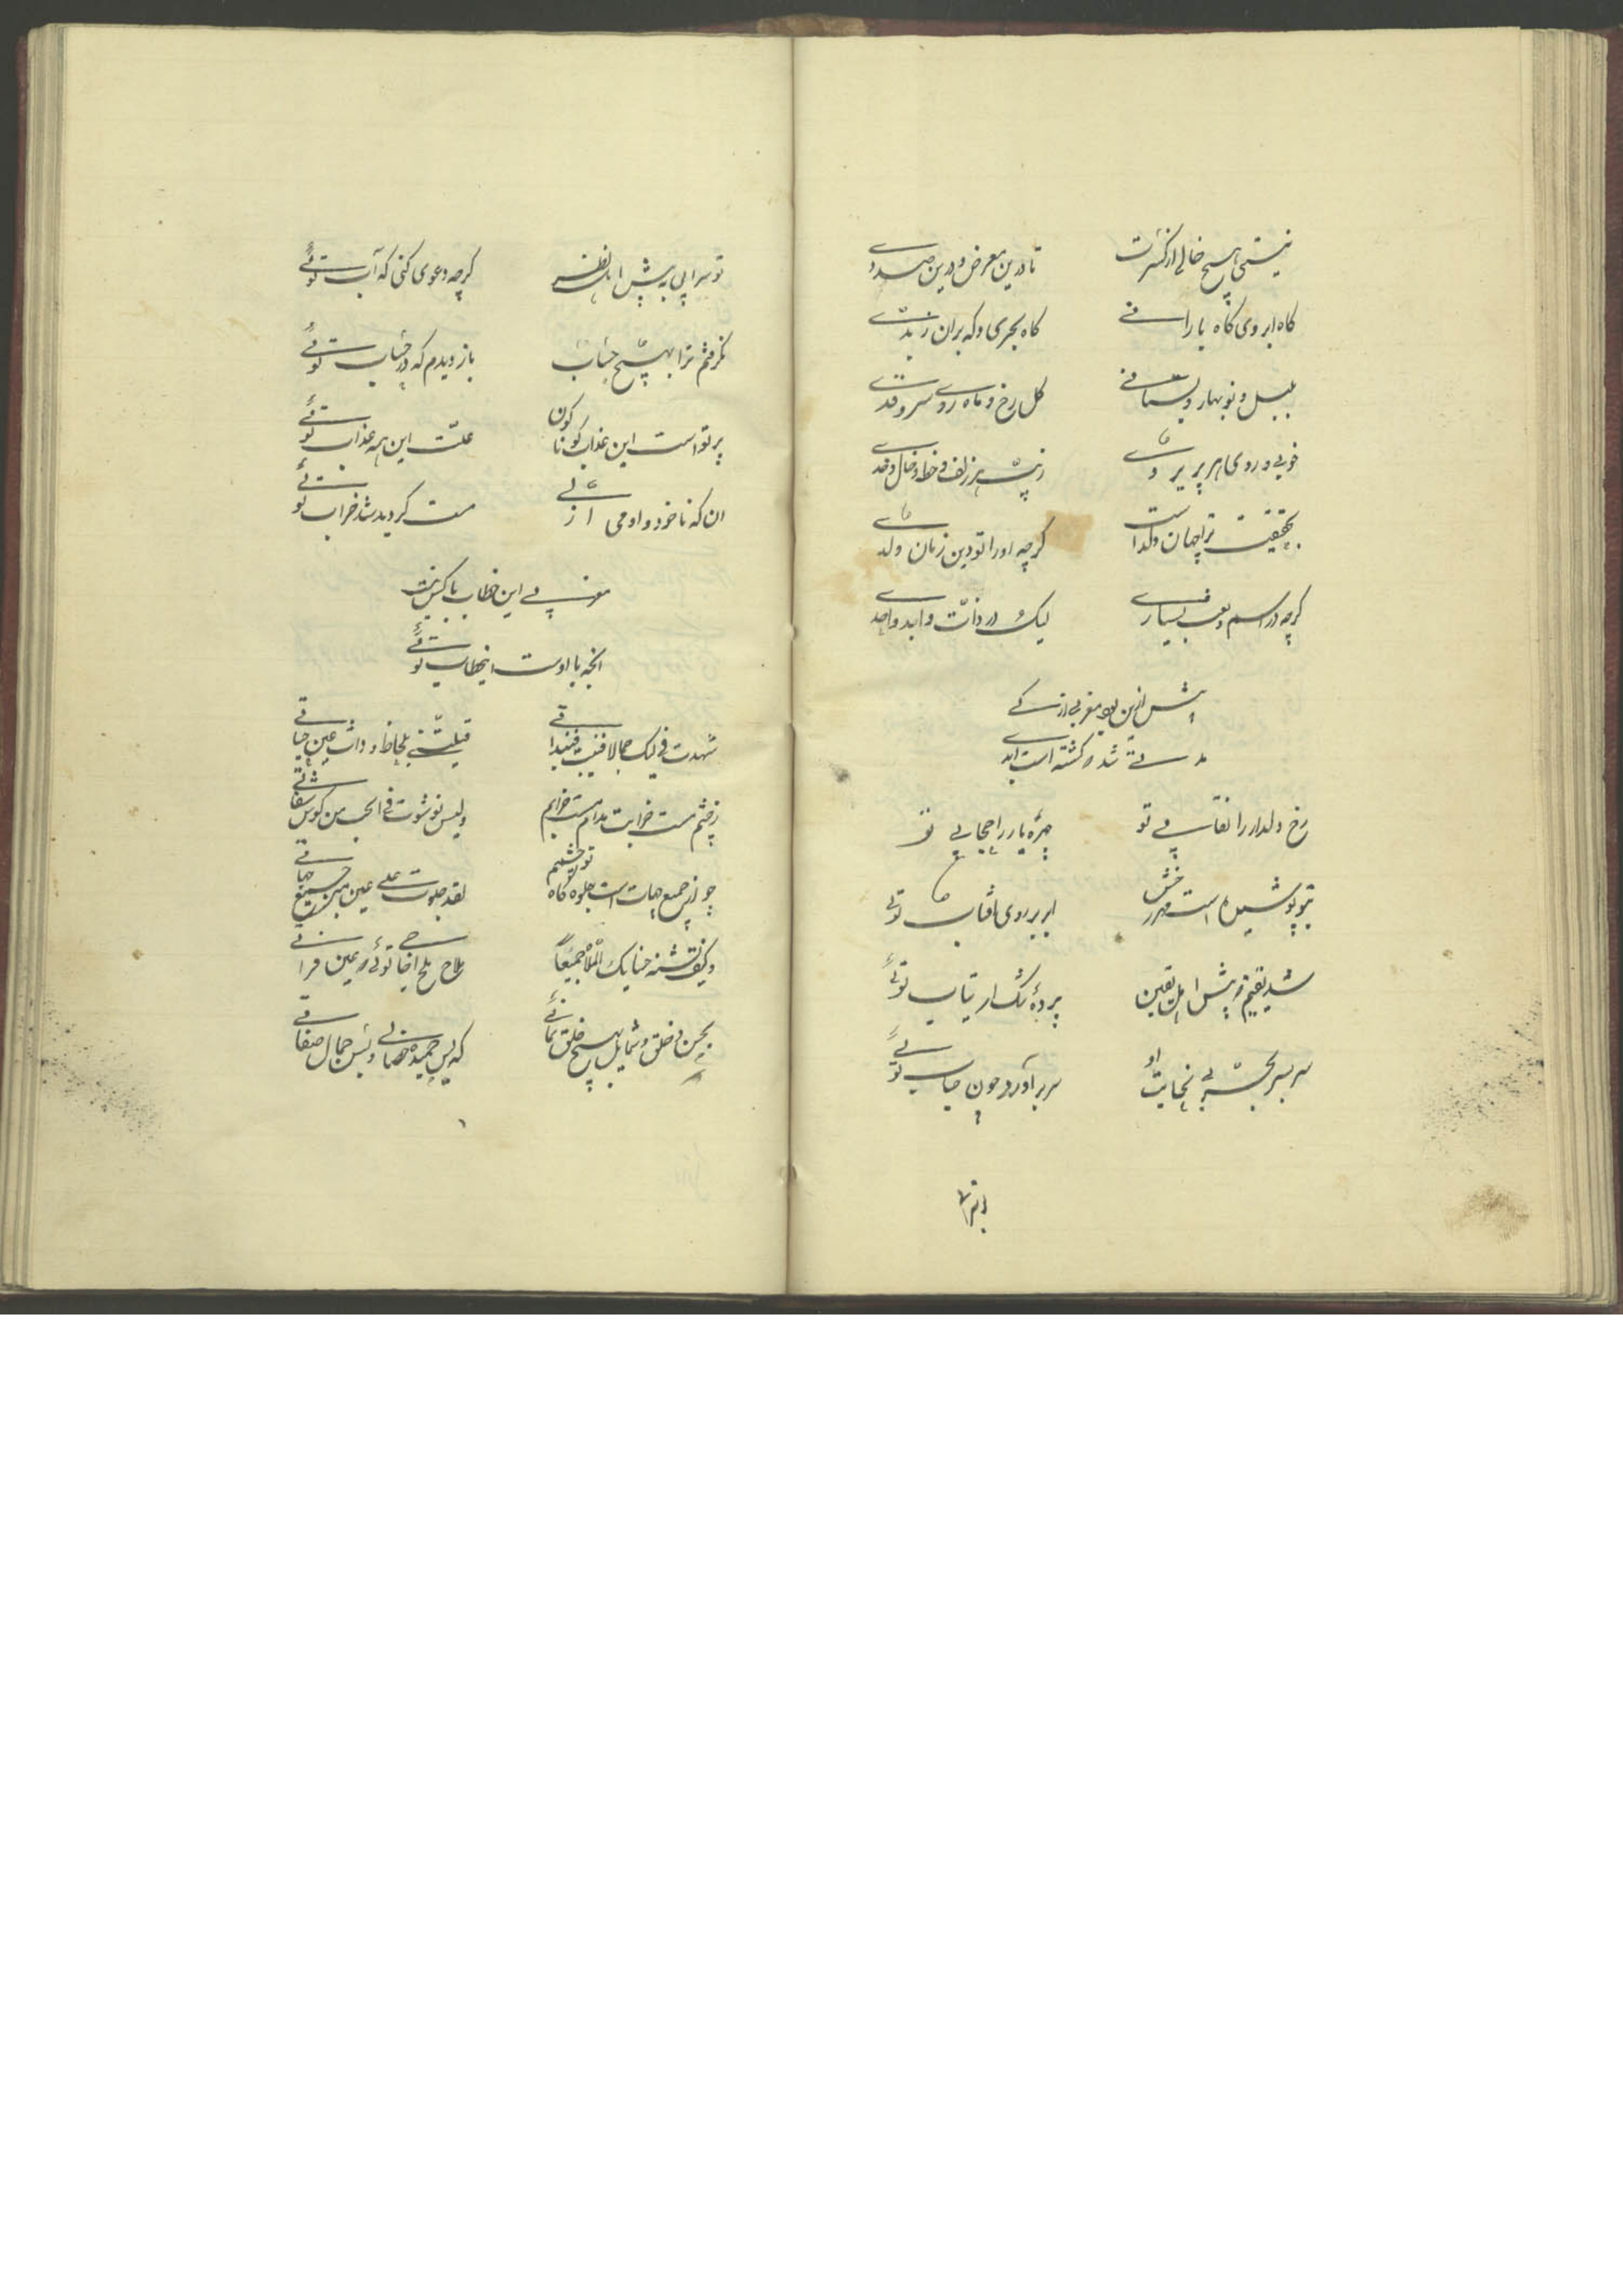 نیستی هیچ خالی از کثرت
تا درین معرض و درین صددی
کاه ابر وی کاه بارانی
کاه بحری و که بران زبدی
بلبل و نوبهار و بستانی
کل رخ و ماه روی سرو قدی
خوبی و روی هر پری روی
زینت هر زلف و خط و خال و خدی
بحقیقت ترا همان ولد است
کرچه او را تو این زمان ولدی
کرچه در اسم و نعت بسیاری
لیک در ذات واحد و احدی
پیش ازین بود مغربی ازلی
مدتی شد که کشته است ابدی
رخ دلدار را نقابی تو
چهره یار را حجابی تو
بتو پوشیده است مهر رخش
ابر بر روی آفتاب توئی
شد یقینم که پیش اهل یقین
پردۀ شک و ارتیاب توئی
بر سر بحر بی نهایت او
سر بر آورده چون حباب توئی
تو سرابی به پیش اهل نظر
کرچه دعوی کنی که آب توئی
نکرفتم ترا بهیچ حساب
باز دیدم که در حساب توئی
پرتو است این عذاب کوناکون
علت این همه عذاب توئی
ان که ناخورده او می ازلی
مست کردید شد خراب توئی
مغربی این خطاب با کس نیست
انچه با اوست اینخطاب توئی
شهدت فیک جمالا فنیت فیه بذاتی
قتلتنی بلحاظ و ذاک عین حیاتی
ز چشم مست خرابت مدام مست خرابم
ولیس نوشوت فی الحب من کوس سقاتی
چو از جمیع جهات است جلوه کاه تو چشمم
لقد جلوت علی عین من جمیع جهاتی
وکیف تشنه حنایک الملا جمیعاً
بحسن و خلق و شمایل بهیچ خلق نمانی
که بس حمیده خصالی و بس جمال صفاتی